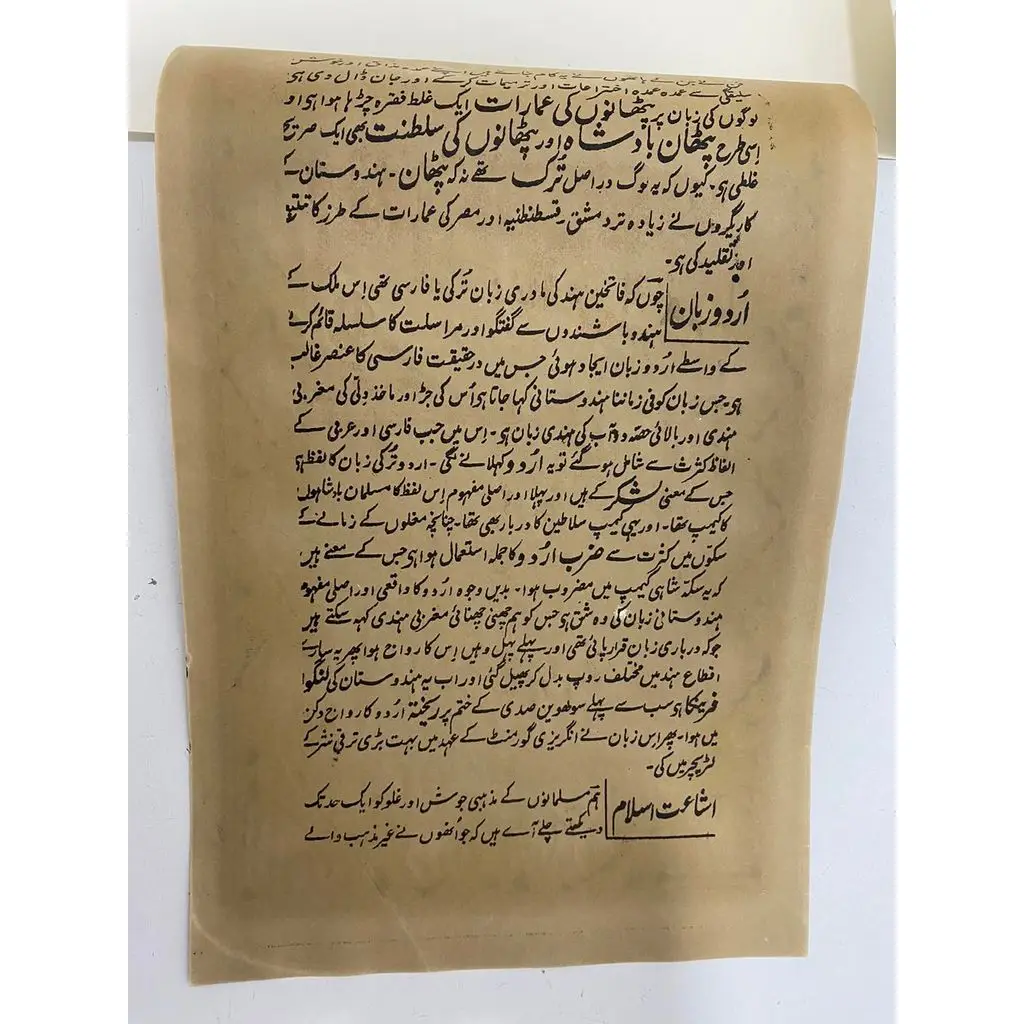 سلیقگی سے عمدہ عمدہ اختراعات اور ترمیمات کرکے اور جان ڈال دی ہی
لوگوں کی زبان پر پٹھانوں کی عمارات ایک غلط فقرہ چڑہا ہوا ہی او
اِسی طرح پٹھان بادشاہ اور پٹھانوں کی سلطنت بھی ایک صریح
غلطی ہو۔ کیوں کہ یہ لوگ در اصل تُرک تھے نہ کہ پٹھان۔ ہندوستان کے
کاریگروں نے زیادہ تر دمشق۔ قسطنطنیہ اور مصر کی عمارات کے طرز کا تتبع
اور تقلید کی ہی۔
اُردو زبان
چوں کہ فاتحین ہند کی مادری زبان تُرکی یا فارسی تھی اِس ملک کے
ہندو باشندوں سے گفتگو اور مراسلت کا سلسلہ قائم کرنے
کے واسطے اردو زبان ایجاد ہوئی جس میں درحقیقت فارسی کا عنصر غالب
ہو۔ جس زبان کو فی زماننا ہندوستانی کہا جاتا ہو اُس کی جڑ اور ماخذ دِلّی کی مغربی
ہندی اور بالائی حصّہ دوآب کی ہندی زبان ہو۔ اِس میں جب فارسی اور عربی کے
الفاظ کثرت سے شامل ہو گئے تو یہ اُردو کہلانے لگی۔ اردو تُرکی زبان کا لفظ ہو
جس کے معنی لشکر کے ہیں اور پہلا اور اصلی مفہوم اِس لفظ کا مسلمان بادشاہوں
کا کیمپ تھا۔ اور یہی کیمپ سلاطین کا دربار بھی تھا۔ چنانچہ مغلوں کے زمانے کے
سکّوں میں کثرت سے ضرب اُردو کا جملہ استعمال ہوا ہی جس کے معنے ہیں
کہ یہ سکّہ شاہی کیمپ میں مضروب ہوا۔ بدیں وجوہ اُردو کا واقعی اور اصلی مفہوم
ہندوستانی زبان کی وہ شق ہو جس کو ہم چھنی چھنائی مغربی ہندی کہہ سکتے ہیں
جو کہ درباری زبان قرار پائی تھی اور پہلے پہل وہیں اِس کا رواج ہوا پھر یہ سارے
اقطاع ہند میں مختلف روپ بدل کر پھیل گئی اور اب یہ ہندوستان کی لنگوا
فرینکا ہو سب سے پہلے سولھوین صدی کے ختم پر ریختۃ اُردو کا رواج دکن
میں ہوا۔ پھر اِس زبان نے انگریزی گورمنٹ کے عہد میں بہت بڑی ترقی نثر کے
لٹریچر میں کی۔
اشاعت اسلام
ہم مسلمانوں کے مذہبی جوش اور غلو کو ایک حد تک
دیکھتے چلے آے ہیں کہ جو اُنھوں نے غیر مذہب والے